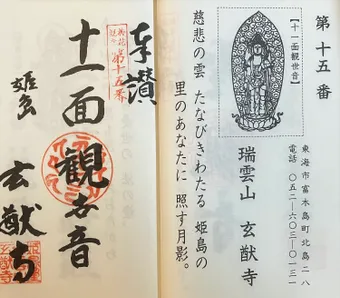 第十五番
【十一面観世音】
東海市富木島町北島二八
電話 〇五二-六〇三-〇一三一
瑞雲山 玄猷寺
慈悲の雲 たなびきわたる 姫島の
里のあなたに 照す月影。
奉讃
第十五番
十一面観世音
姫島
玄猷寺